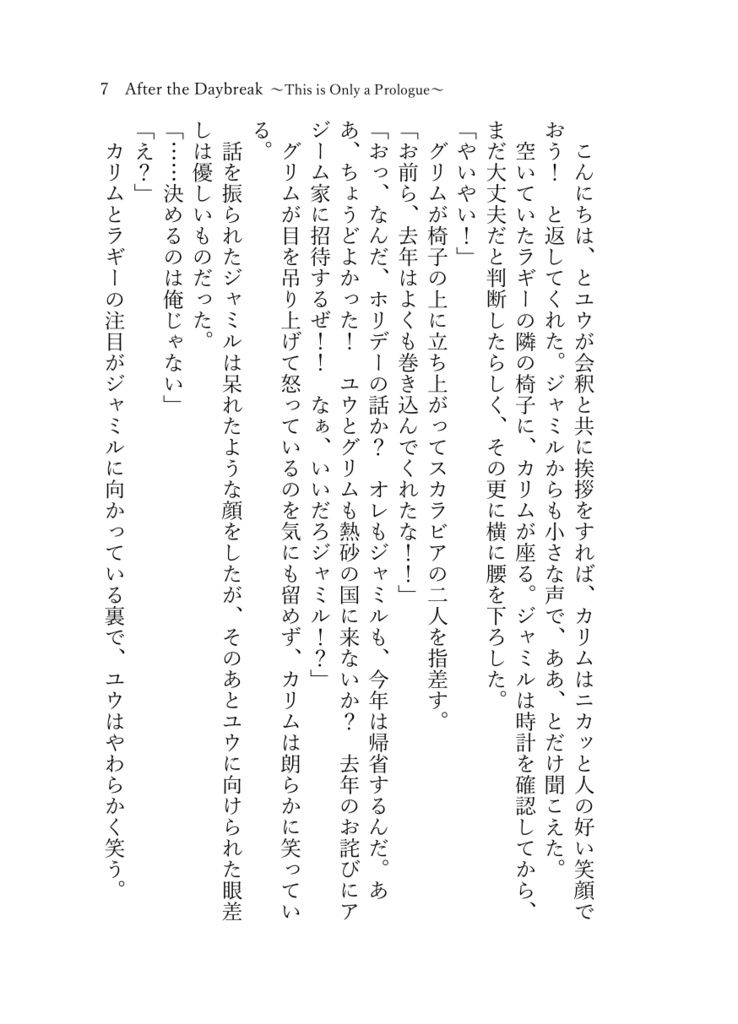 7 After the Daybreak ～This is Only a Prologue～
こんにちは、とユウが会釈と共に挨拶をすれば、カリムはニカッと人の好い笑顔で
おう！　と返してくれた。ジャミルからも小さな声で、ああ、とだけ聞こえた。
空いていたラギーの隣の椅子に、カリムが座る。ジャミルは時計を確認してから、
まだ大丈夫だと判断したらしく、その更に横に腰を下ろした。
「やいやい！」
グリムが椅子の上に立ち上がってスカラビアの二人を指差す。
「お前ら、去年はよくも巻き込んでくれたな！！」
「おっ、なんだ、ホリデーの話か？　オレもジャミルも、今年は帰省するんだ。あ
あ、ちょうどよかった！　ユウとグリムも熱砂の国に来ないか？　去年のお詫びにア
ジーム家に招待するぜ！！　なぁ、いいだろジャミル！？」
グリムが目を吊り上げて怒っているのを気にも留めず、カリムは朗らかに笑ってい
る。
話を振られたジャミルは呆れたような顔をしたが、そのあとユウに向けられた眼差
しは優しいものだった。
「……決めるのは俺じゃない」
「え？」
カリムとラギーの注目がジャミルに向かっている裏で、ユウはやわらかく笑う。